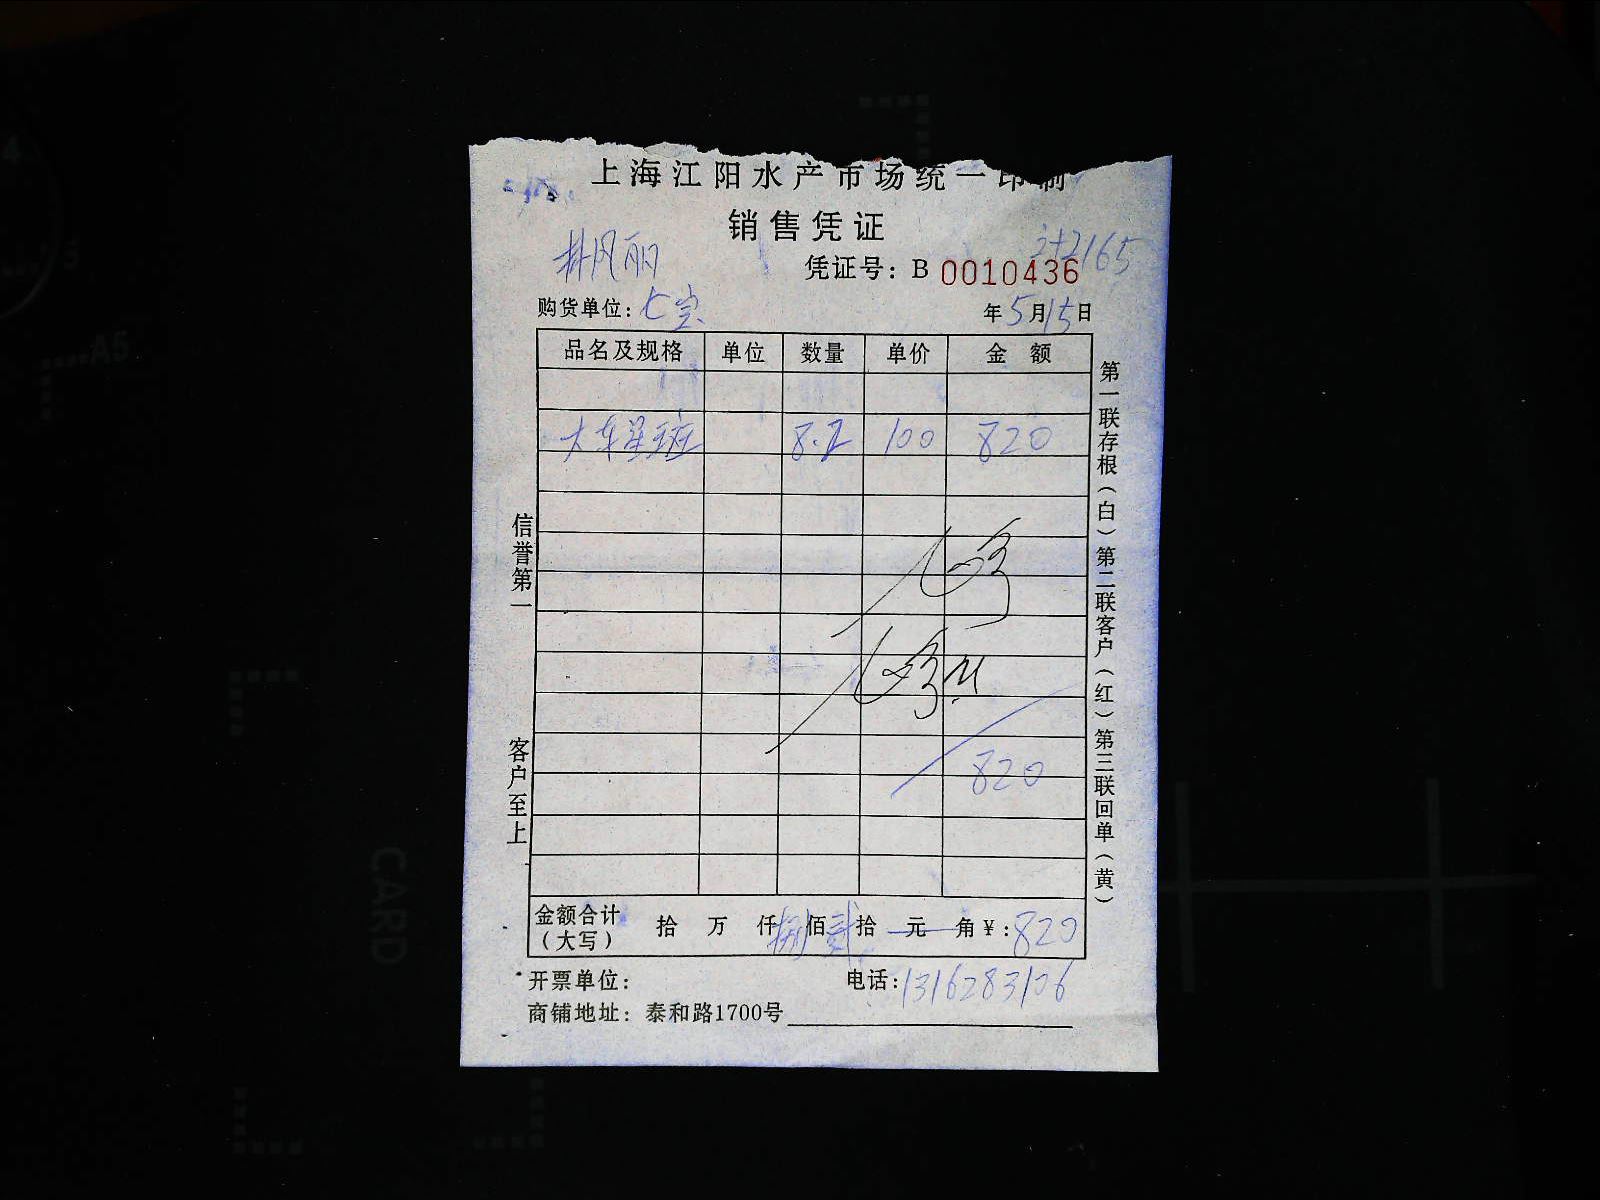 上海江阳水产市场统一印制
销售凭证
凭证号：B 0010436
购货单位：七宝
年5月15日
品名及规格 单位 数量 单价 金 额
8.2 100 820
820
金额合计（大写） 拾 万 仟捌佰贰拾 元 角¥：820
开票单位： 电话：
商铺地址： 泰和路1700号
信誉第一 客户至上
第一联存根（白）第二联客户（红）第三联回单（黄）
CARD
A5